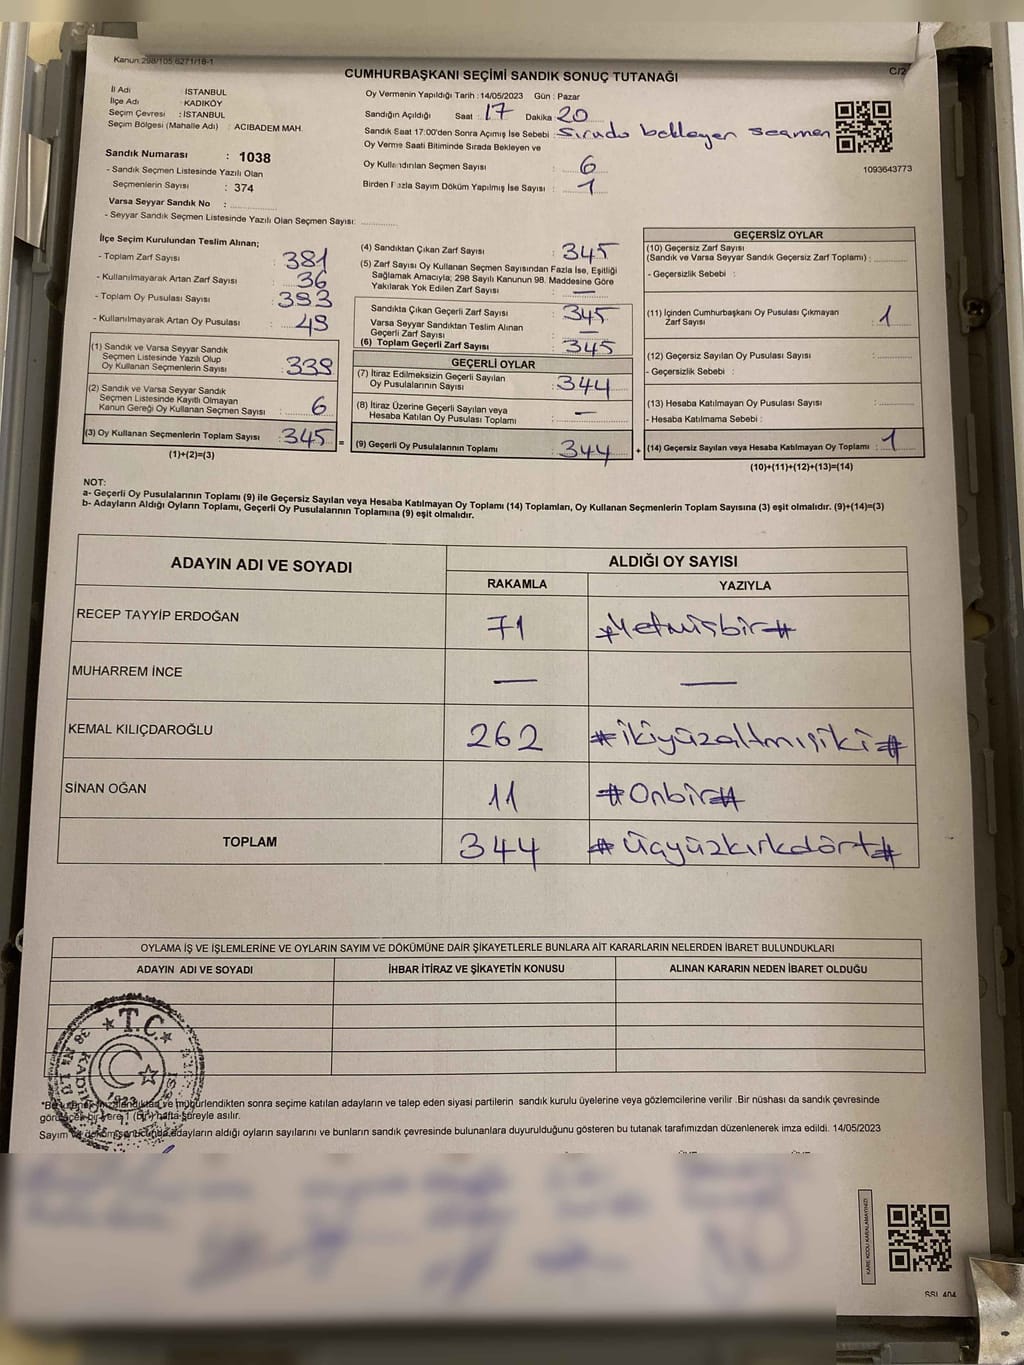 Kanun:298/105,6271/18-1
C/2
CUMHURBAŞKANI SEÇİMİ SANDIK SONUÇ TUTANAĞI
İl Adı : İSTANBUL
İlçe Adı : KADIKÖY
Seçim Çevresi : İSTANBUL
Seçim Bölgesi (Mahalle Adı) : ACIBADEM MAH.
Sandık Numarası : 1038
- Sandık Seçmen Listesinde Yazılı Olan
Seçmenlerin Sayısı : 374
Varsa Seyyar Sandık No :
- Seyyar Sandık Seçmen Listesinde Yazılı Olan Seçmen Sayısı:
Oy Vermenin Yapıldığı Tarih : 14/05/2023 Gün : Pazar
Sandığın Açıldığı Saat : 17 Dakika : 20
Sandık Saat 17:00'den Sonra Açımış İse Sebebi : Sırada bekleyen seçmen
Oy Verme Saati Bitiminde Sırada Bekleyen ve
Oy Kullandırılan Seçmen Sayısı : 6
Birden Fazla Sayım Döküm Yapılmış İse Sayısı : 1
1093643773
İlçe Seçim Kurulundan Teslim Alınan;
- Toplam Zarf Sayısı : 381
- Kullanılmayarak Artan Zarf Sayısı : 36
- Toplam Oy Pusulası Sayısı : 393
- Kullanılmayarak Artan Oy Pusulası : 49
(1) Sandık ve Varsa Seyyar Sandık
Seçmen Listesinde Yazılı Olup
Oy Kullanan Seçmenlerin Sayısı : 339
(2) Sandık ve Varsa Seyyar Sandık
Seçmen Listesinde Kayıtlı Olmayan
Kanun Gereği Oy Kullanan Seçmen Sayısı : 6
(3) Oy Kullanan Seçmenlerin Toplam Sayısı : 345 =
(1)+(2)=(3)
(4) Sandıktan Çıkan Zarf Sayısı : 345
(5) Zarf Sayısı Oy Kullanan Seçmen Sayısından Fazla İse, Eşitliği
Sağlamak Amacıyla; 298 Sayılı Kanunun 98. Maddesine Göre
Yakılarak Yok Edilen Zarf Sayısı : —
Sandıkta Çıkan Geçerli Zarf Sayısı : 345
Varsa Seyyar Sandıktan Teslim Alınan
Geçerli Zarf Sayısı : —
(6) Toplam Geçerli Zarf Sayısı : 345
GEÇERLİ OYLAR
(7) İtiraz Edilmeksizin Geçerli Sayılan
Oy Pusulalarının Sayısı : 344
(8) İtiraz Üzerine Geçerli Sayılan veya
Hesaba Katılan Oy Pusulası Toplamı : —
(9) Geçerli Oy Pusulalarının Toplamı : 344 +
GEÇERSİZ OYLAR
(10) Geçersiz Zarf Sayısı
(Sandık ve Varsa Seyyar Sandık Geçersiz Zarf Toplamı) :
- Geçersizlik Sebebi :
(11) İçinden Cumhurbaşkanı Oy Pusulası Çıkmayan
Zarf Sayısı : 1
(12) Geçersiz Sayılan Oy Pusulası Sayısı :
- Geçersizlik Sebebi :
(13) Hesaba Katılmayan Oy Pusulası Sayısı :
- Hesaba Katılmama Sebebi :
(14) Geçersiz Sayılan veya Hesaba Katılmayan Oy Toplamı : 1
(10)+(11)+(12)+(13)=(14)
NOT:
a- Geçerli Oy Pusulalarının Toplamı (9) ile Geçersiz Sayılan veya Hesaba Katılmayan Oy Toplamı (14) Toplamları, Oy Kullanan Seçmenlerin Toplam Sayısına (3) eşit olmalıdır. (9)+(14)=(3)
b- Adayların Aldığı Oyların Toplamı, Geçerli Oy Pusulalarının Toplamına (9) eşit olmalıdır.
ADAYIN ADI VE SOYADI ALDIĞI OY SAYISI
RAKAMLA YAZIYLA
RECEP TAYYİP ERDOĞAN 71 #Yetmişbir#
MUHARREM İNCE — —
KEMAL KILIÇDAROĞLU 262 #ikiyüzaltmışiki#
SİNAN OĞAN 11 #Onbir#
TOPLAM 344 #üçyüzkırkdört#
OYLAMA İŞ VE İŞLEMLERİNE VE OYLARIN SAYIM VE DÖKÜMÜNE DAİR ŞİKAYETLERLE BUNLARA AİT KARARLARIN NELERDEN İBARET BULUNDUKLARI
ADAYIN ADI VE SOYADI İHBAR İTİRAZ VE ŞİKAYETİN KONUSU ALINAN KARARIN NEDEN İBARET OLDUĞU
T.C.
1923
sonra seçime katılan adayların ve talep eden siyasi partilerin sandık kurulu üyelerine veya gözlemcilerine verilir .Bir nüshası da sandık çevresinde
bir yere 1 (bir) hafta süreyle asılır.
Sayım ve adayların aldığı oyların sayılarını ve bunların sandık çevresinde bulunanlara duyurulduğunu gösteren bu tutanak tarafımızdan düzenlenerek imza edildi. 14/05/2023
KARE KODU KARALAMAYINIZ!
SSI 404